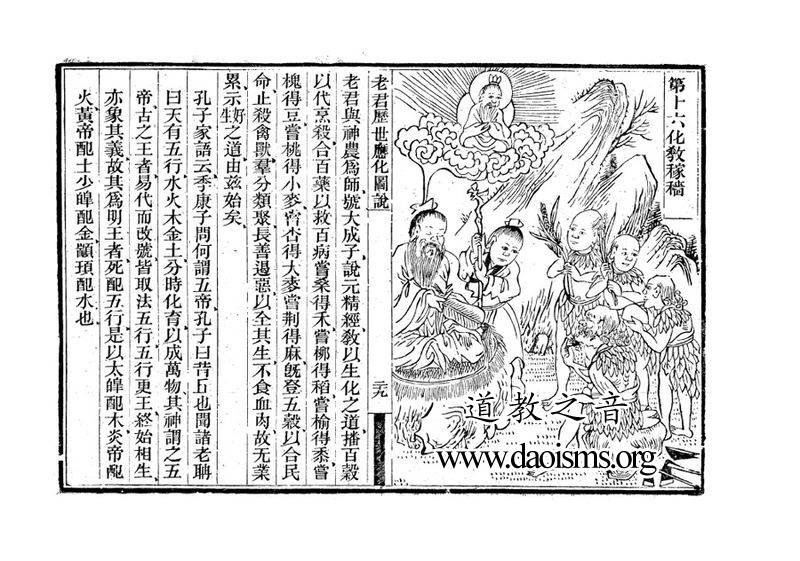 第十六化教稼穡
老君歷世應化圖說
二九
老君與神農爲師號大成子說元精經敎以生化之道播百穀
以代烹殺合百藥以救百病嘗桑得禾嘗柳得稻嘗榆得黍嘗
槐得豆嘗桃得小麥嘗杏得大麥嘗荆得麻旣登五穀以合民
命止殺禽獸羣分類聚長善遏惡以全其生不食血肉故无業
累示生好之道由茲始矣
孔子家語云季康子問何謂五帝孔子曰昔丘也聞諸老聃
曰天有五行水火木金土分時化育以成萬物其神謂之五
帝古之王者易代而改號皆取法五行五行更王終始相生
亦象其義故其爲明王者死配五行是以太皥配木炎帝配
火黃帝配土少皥配金顓頊配水也
道教之音
www.daoisms.org